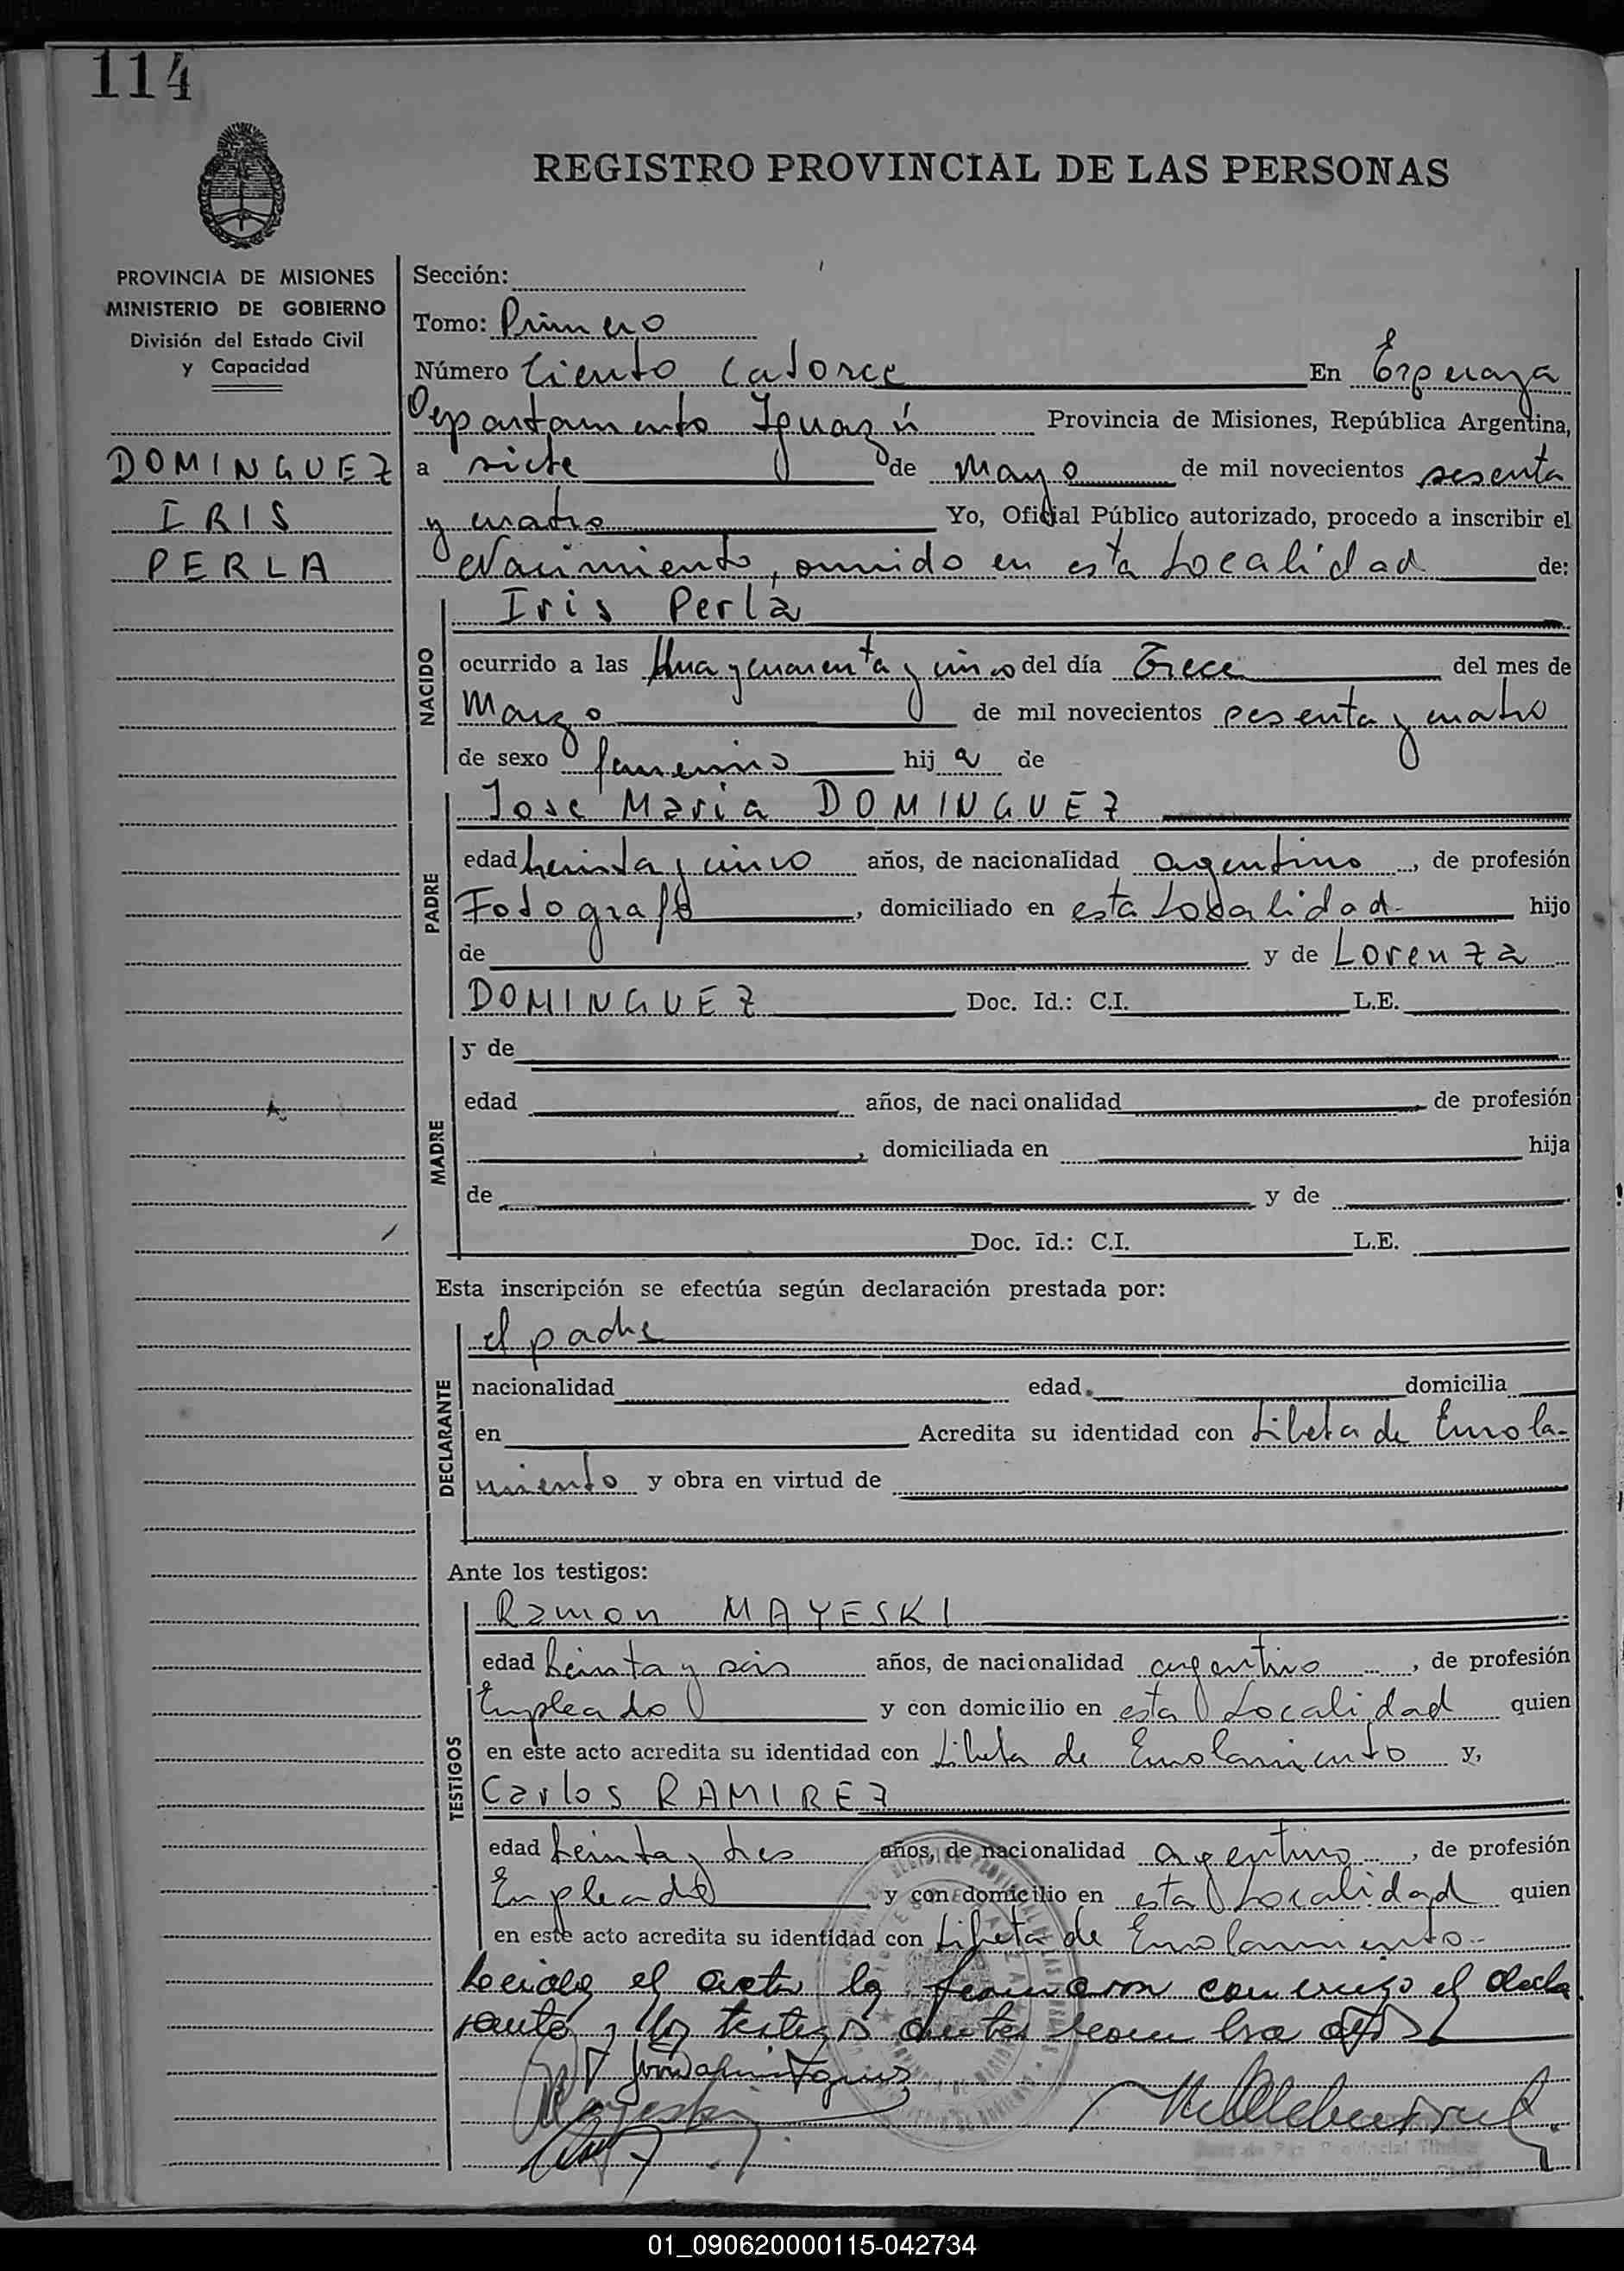 114
REGISTRO PROVINCIAL DE LAS PERSONAS
PROVINCIA DE MISIONES
MINISTERIO DE GOBIERNO
División del Estado Civil
y Capacidad
DOMINGUEZ
IRIS
PERLA
Sección:
Tomo: Primero
Número Ciento Catorce En Esperaza
Departamento Iguazú Provincia de Misiones, República Argentina,
a siete de Mayo de mil novecientos sesenta
y cuatro Yo, Oficial Público autorizado, procedo a inscribir el
Nacimiento, ocurrido en esta Localidad de:
NACIDO
Iris Perla
ocurrido a las Una y cuarenta y cinco del día Trece del mes de
Marzo de mil novecientos sesenta y cuatro
de sexo femenino hij a de
PADRE
Jose Maria DOMINGUEZ
edad treinta y cinco años, de nacionalidad argentino, de profesión
Fotografo, domiciliado en esta Localidad hijo
de y de Lorenza
DOMINGUEZ Doc. Id.: C.I. L.E.
MADRE
y de
edad años, de nacionalidad de profesión
, domiciliada en hija
de y de
Doc. Id.: C.I. L.E.
Esta inscripción se efectúa según declaración prestada por:
DECLARANTE
el padre
nacionalidad edad domicilia
en Acredita su identidad con Libreta de Enrola-
miento y obra en virtud de
Ante los testigos:
TESTIGOS
Ramon MAYESKI
edad treinta y seis años, de nacionalidad argentino, de profesión
Empleado y con domicilio en esta Localidad quien
en este acto acredita su identidad con Libreta de Enrolamiento y,
Carlos RAMIREZ
edad treinta y tres años, de nacionalidad argentino, de profesión
Empleado y con domicilio en esta Localidad quien
en este acto acredita su identidad con Libreta de Enrolamiento
Leida el acta la firmaron conmigo el decla
rante y los testigos antes
01_090620000115-042734